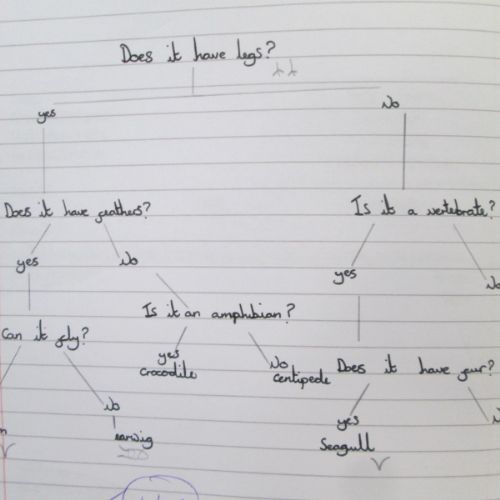 Does it have legs?
yes
No
Does it have feathers?
Is it a vertebrate?
yes
No
yes
Is it an amphibian?
Can it fly?
yes
crocodile
No
centipede
Does it have fur?
No
earwig
yes
Seagull